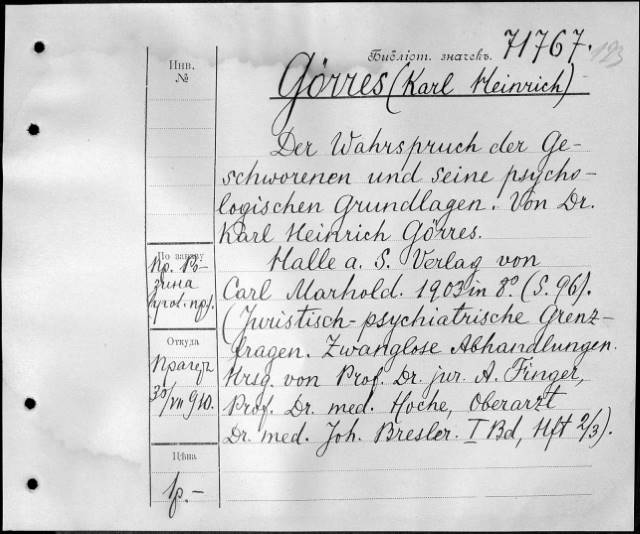 Библіот. значекъ. 71767. 193
Инв.
№
Görres (Karl Heinrich)
Der Wahrspruch der Ge-
schworenen und seine psycho-
logischen Grundlagen. Von Dr.
Karl Heinrich Görres.
Halle a. S. Verlag von
Carl Marhold. 1903 in 8° (S. 96).
(Juristisch-psychiatrische Grenz-
fragen. Zwanglose Abhandlungen.
Hrsg. von Prof. Dr. jur. A. Finger,
Prof. Dr. med. Hoche, Oberarzt
Dr. med. Joh. Bresler. I Bd, Hft 2/3).
По заказу
Пр. Ро-
зина
Откуда
Прагеръ
30/VII 910.
Цѣна
1р.-